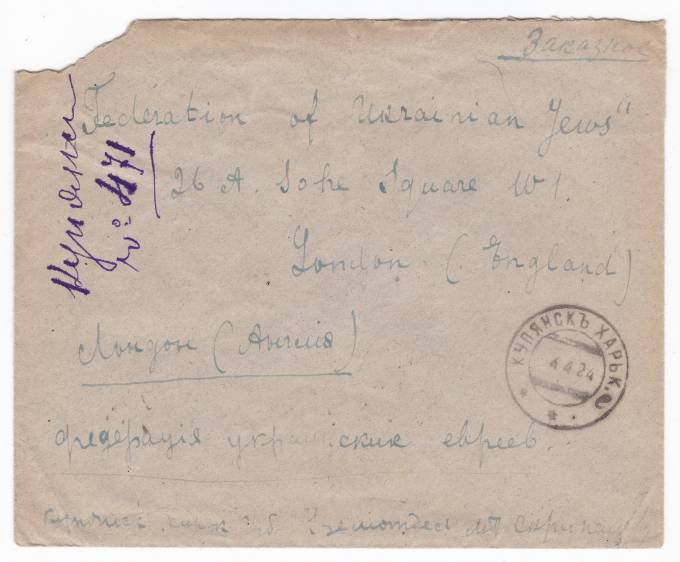 Заказное
Federation of Ukrainian Jews"
26 A. Sohe Square W 1.
London (England)
Лондон (Англия)
федерація украинских евреев.
Купянск
№ 471
КУПЯНСКЪ ХАРЬК.
4.4.24